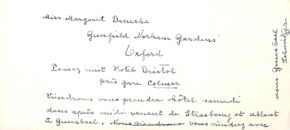 Miss Margaret Deneke
Gunfield Norham Gardens
Oxford
Passez nuit Hotel Bristol
près gare Colmar
Viendrons vous prendre hôtel samedi
dans après midi venant de Strasbourg et allant
à Gunsbach. Nous viendrons vous viendrez avec
nous Gunsbach
Schweitzer